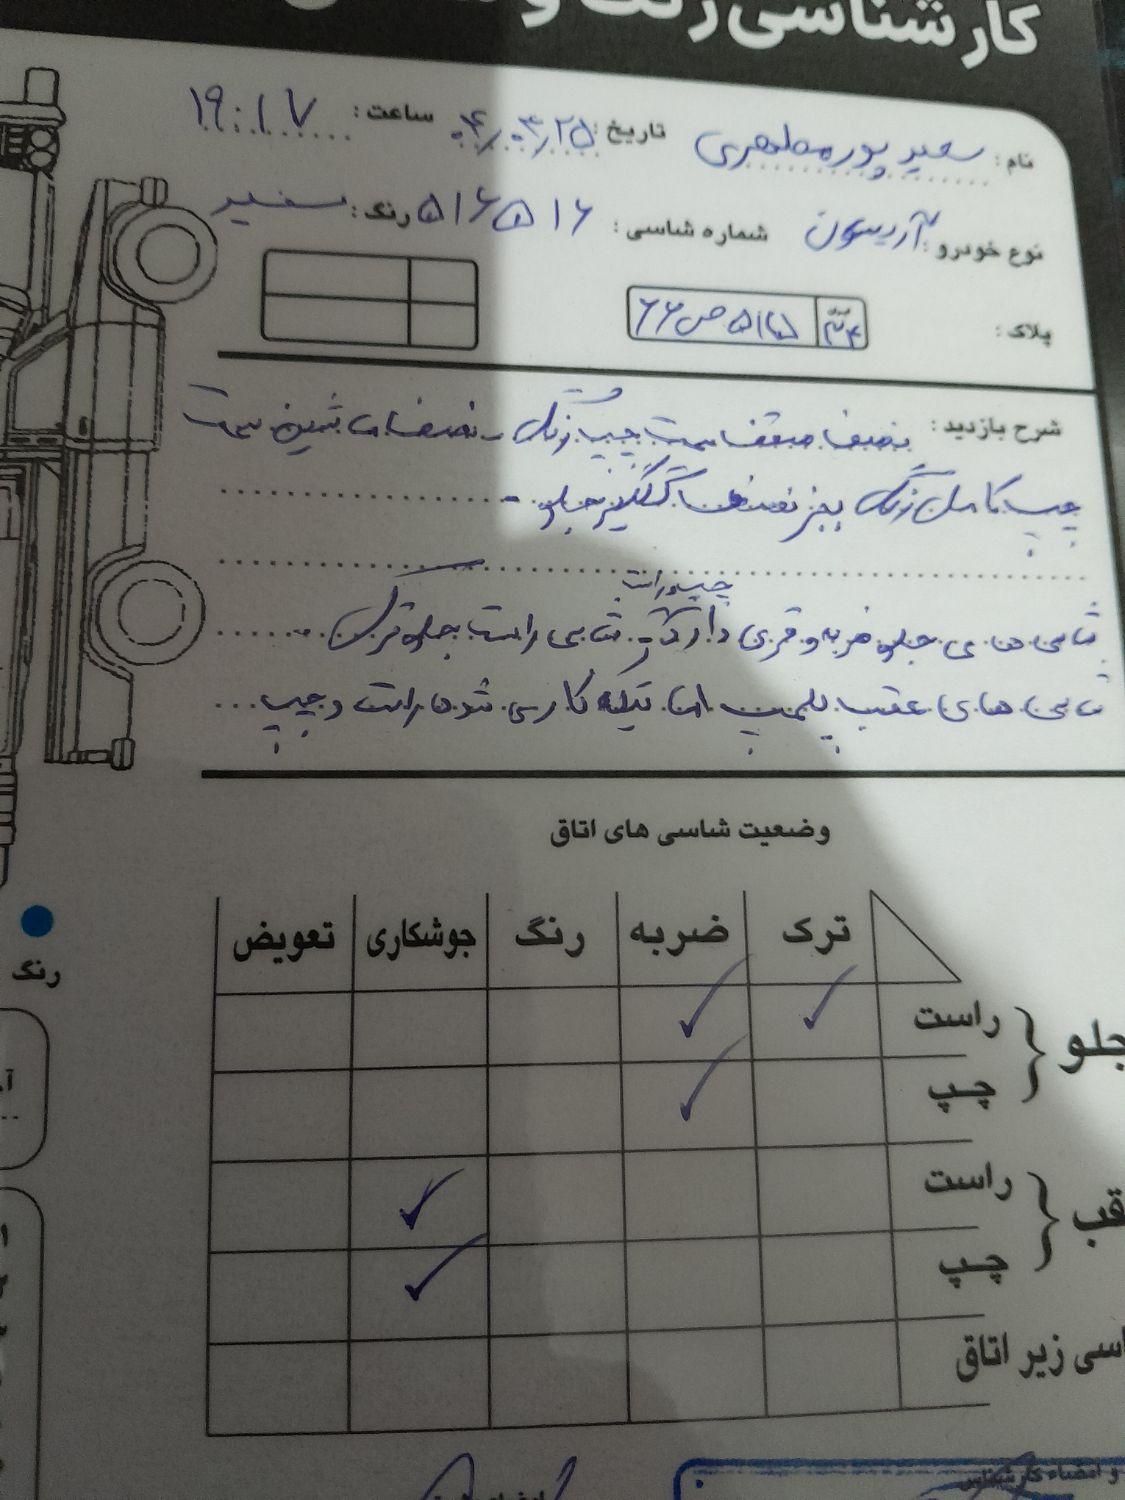 کارشناسی رنگ و
نام: سعید پورمطهری تاریخ: ۰۴/۰۳/۲۵ ساعت: ۱۹:۱۷
نوع خودرو: آریسون شماره شاسی: ۵۱۶۵۱۶ رنگ: سفید
پلاک: ایران ۳۴ ص ۶۶
شرح بازدید: نصف سقف سمت چپ رنگ - نصف ماشین سمت
چپ کامل رنگ بجز نصف گلگیر جلو -
چپ و راست
شاسی های جلو ضربه و قری دارد و شاسی راست جلو ترک
شاسی های عقب پلمپ اما تیکه کاری شده راست و چپ
وضعیت شاسی های اتاق
ترک ضربه رنگ جوشکاری تعویض
جلو راست
چپ
راست
چپ
زیر اتاق
رنگ
و امضاء کارشناس